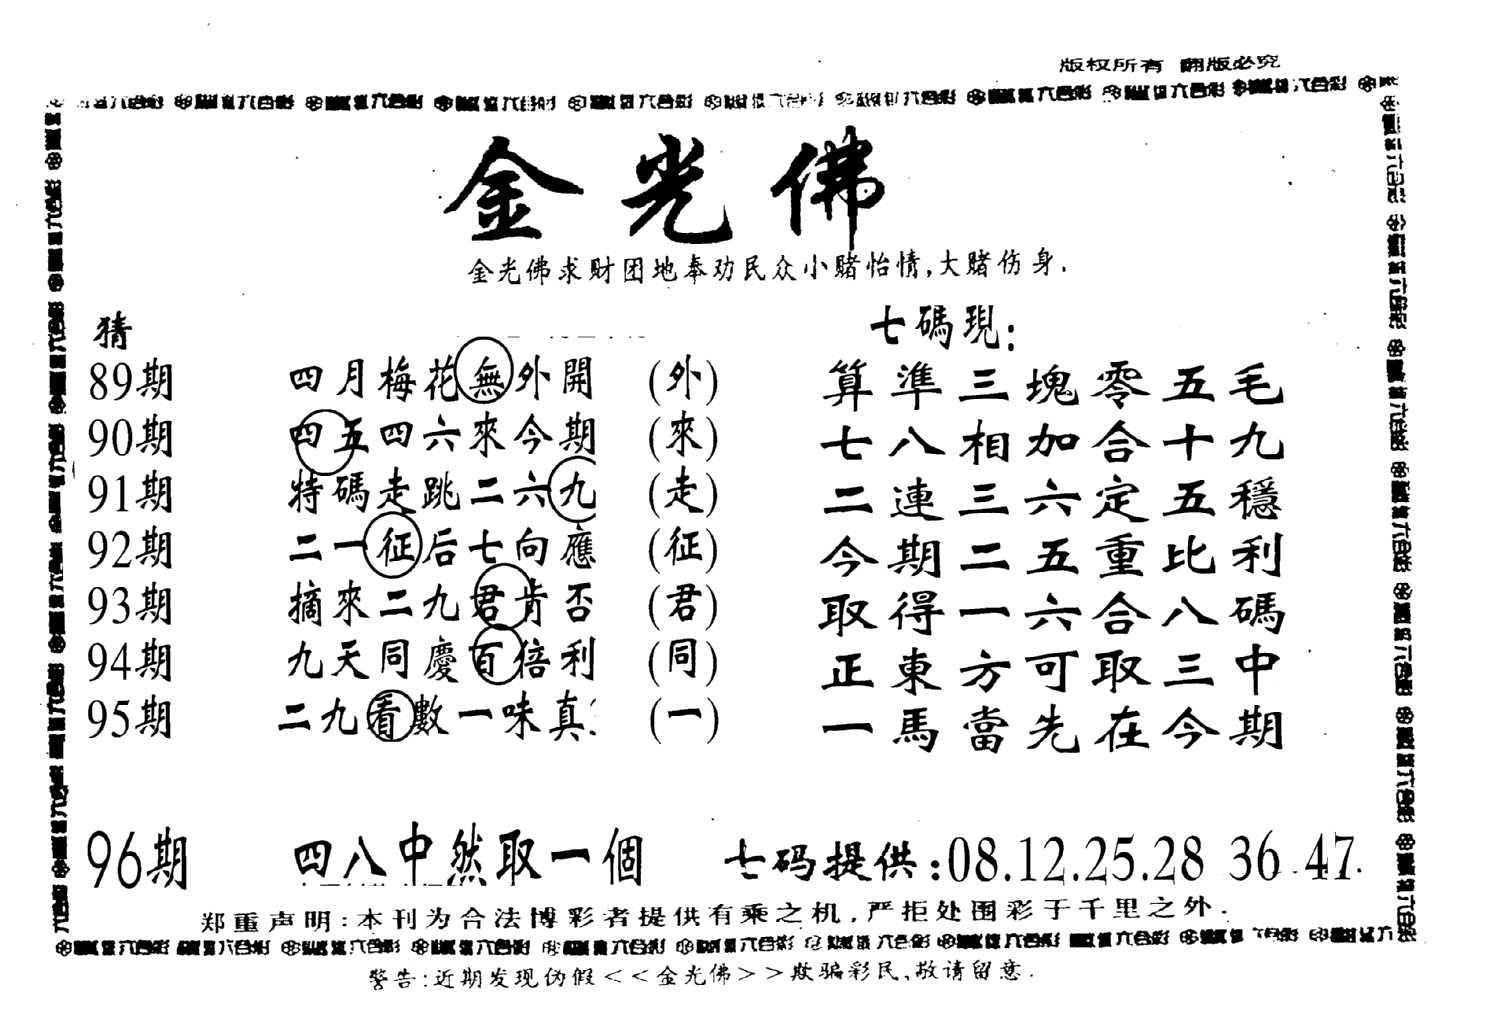 版权所有 翻版必究
金光佛
金光佛求财团地奉劝民众小赌怡情,大赌伤身.
猜
七碼現:
89期 四月梅花無外開 (外) 算準三塊零五毛
90期 四五四六來今期 (來) 七八相加合十九
91期 特碼走跳二六九 (走) 二連三六定五穩
92期 二一征后七向應 (征) 今期二五重比利
93期 摘來二九君肯否 (君) 取得一六合八碼
94期 九天同慶百倍利 (同) 正東方可取三中
95期 二九看數一味真 (一) 一馬當先在今期
96期 四八中然取一個 七码提供:08.12.25.28 36.47.
郑重声明:本刊为合法博彩者提供有乘之机,严拒处围彩于千里之外.
警告:近期发现伪假<<金光佛>>欺骗彩民,敬请留意.